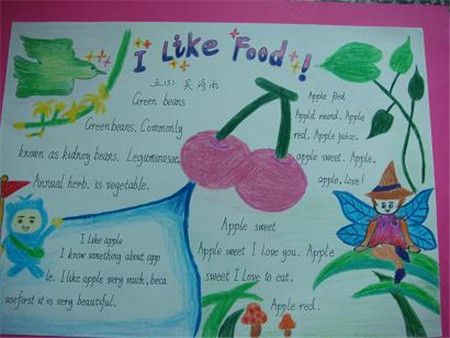 I Like Food!
五(5) 吴
Green beans
Green beans. Commonly
known as kidney beans. Leguminosae
Annual herb. is vegetable.
Apple Red.
Appld round. Apple
red. Apple juice.
apple sweet. Apple.
apple. Love!
I like apple
I know something about app
le. I like apple very much. beca
useforst it is very beautiful.
Apple sweet
Apple sweet I love you. Apple
sweet I love to eat.
Apple red.